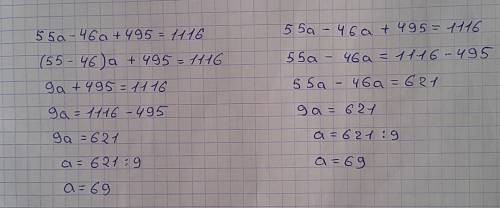 55a - 46a + 495 = 1116
(55 - 46)a + 495 = 1116
9a + 495 = 1116
9a = 1116 - 495
9a = 621
a = 621 : 9
a = 69
55a - 46a + 495 = 1116
55a - 46a = 1116 - 495
55a - 46a = 621
9a = 621
a = 621 : 9
a = 69